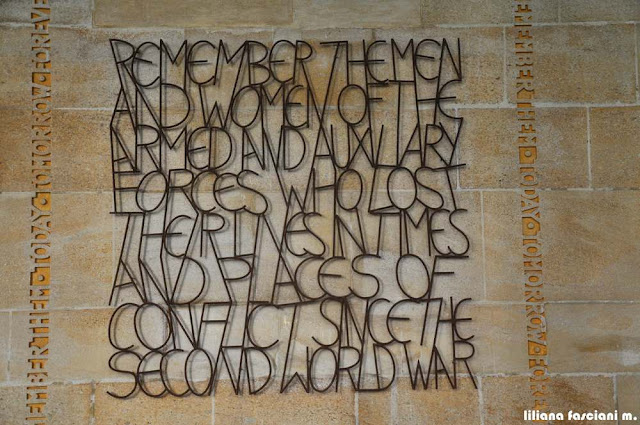 EMBER THEM TODAY TOMORROW FOREVE
REMEMBER THE MEN
AND WOMEN OF THE
ARMED AND AUXILIARY
FORCES WHO LOST
THEIR LIVES IN TIMES
AND PLACES OF
CONFLICT SINCE THE
SECOND WORLD WAR
EMBER THEM TODAY TOMORROW FO
liliana fasciani m.